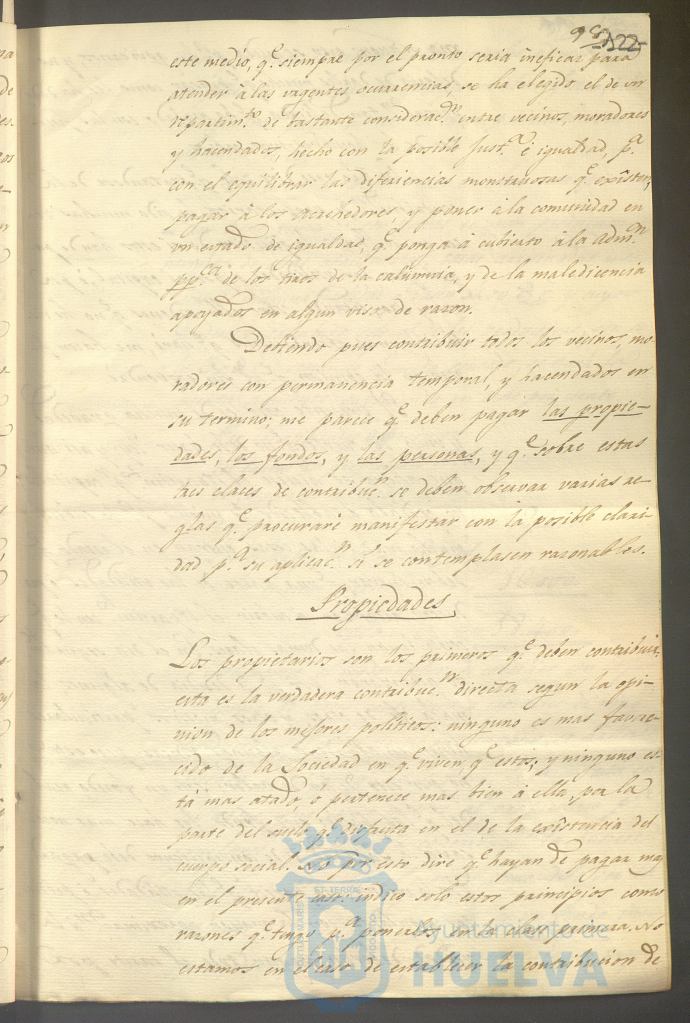 122
este medio, q.e siempre por el pronto seria ineficaz para
atender à las urgentes ocurrencias, se ha elegido el de un
repartim.to de bastante considerac.n entre vecinos, moradores
y hacendados, hecho con la posible Just.a è igualdad, p.a
con el equilibrar las diferiencias monstruosas q.e existen,
pagar à los acrehedores, y poner à la comunidad en
un estado de igualdad, q.e ponga à cubierto à la Adm.on
pp.ca de los tiros de la calumnia, y de la maledicencia
apoyados en algun viso de razon.
Debiendo pues contribuir todos los vecinos, mo-
radores con permanencia temporal, y hacendados en
su termino; me parece q.e deben pagar las propie-
dades, los fondos, y las personas, y q.e sobre estas
tres clases de contribuc.n se deben observar varias re-
glas q.e procuraré manifestar con la posible clari-
dad p.a su aplicac.n si se contemplasen razonables.
Propiedades
Los propietarios son los primeros q.e deben contribuir,
esta es la verdadera contribuc.n directa segun la opi-
nion de los mejores politicos: ninguno es mas favore-
cido de la Sociedad en q.e viven, q.e estos; y ninguno es-
tá mas atado, ò pertenece mas bien à ella, por la
parte del suelo q.e disfruta en el de la existencia del
cuerpo social. No por esto diré q.e hayan de pagar mas
en el presente caso: indico solo estos principios como
razones q.e tengo p.a ponerlos en la clase primera. No
estamos en el caso de establecer la contribucion de
Ayuntamiento de
HUELVA